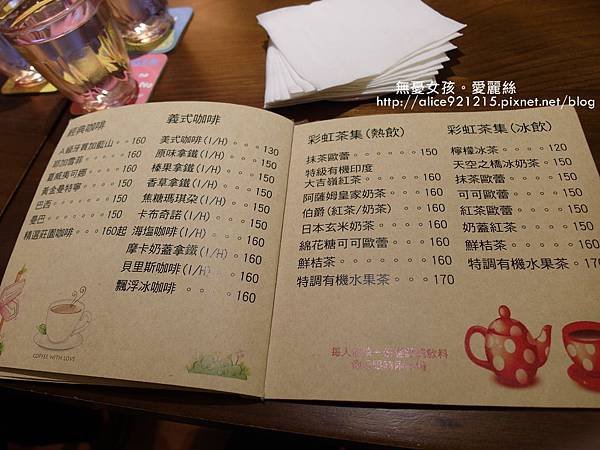 無憂女孩。愛麗絲
http://alice921215.pixnet.net/blog
經典咖啡
人頭牙買加藍山。。160
耶加雪菲。。。。。150
夏威夷可娜。。。。160
黃金曼特寧。。。。150
巴西。。。。。。。150
曼巴。。。。。。。150
精選莊園咖啡。。。160起
COFFEE WITH LOVE
義式咖啡
美式咖啡(I/H)。。。130
原味拿鐵(I/H)。。。150
榛果拿鐵(I/H)。。。150
香草拿鐵(I/H)。。。150
焦糖瑪琪朵(I/H)。。150
卡布奇諾(I/H)。。。150
海鹽咖啡(I/H)。。。160
摩卡奶蓋拿鐵(I/H)。160
貝里斯咖啡(I/H)。。160
飄浮冰咖啡 。。。。160
彩虹茶集(熱飲)
抹茶歐蕾。。。。。。150
特級有機印度
大吉嶺紅茶。。。。160
阿薩姆皇家奶茶。。160
伯爵(紅茶/奶茶) 160
日本玄米奶茶。。。160
綿花糖可可歐蕾。。160
鮮桔茶。。。。。。160
特調有機水果茶。。。170
彩虹茶集(冰飲)
檸檬冰茶。。。。120
天空之橋冰奶茶。150
抹茶歐蕾。。。。150
可可歐蕾。。。。150
紅茶歐蕾。。。。150
奶蓋紅茶。。。。150
鮮桔茶。。。。。160
特調有機水果茶。170
每人
飲料